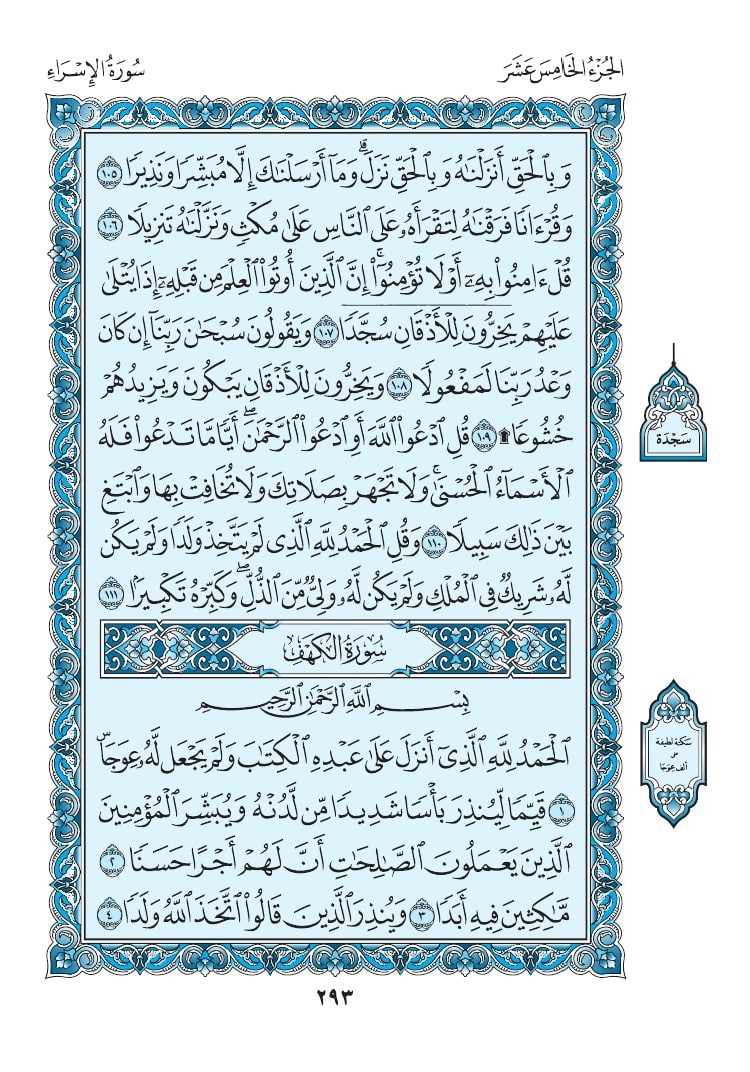 الجُزْءُ الخَامِسَ عَشَرَ
سُورَةُ الإِسْرَاءِ
وَبِٱلۡحَقِّ أَنزَلۡنَٰهُ وَبِٱلۡحَقِّ نَزَلَۗ وَمَآ أَرۡسَلۡنَٰكَ إِلَّا مُبَشِّرٗا وَنَذِيرٗا ١٠٥
وَقُرۡءَانٗا فَرَقۡنَٰهُ لِتَقۡرَأَهُۥ عَلَى ٱلنَّاسِ عَلَىٰ مُكۡثٖ وَنَزَّلۡنَٰهُ تَنزِيلٗا ١٠٦
قُلۡ ءَامِنُواْ بِهِۦٓ أَوۡ لَا تُؤۡمِنُوٓاْۚ إِنَّ ٱلَّذِينَ أُوتُواْ ٱلۡعِلۡمَ مِن قَبۡلِهِۦٓ إِذَا يُتۡلَىٰ
عَلَيۡهِمۡ يَخِرُّونَۤ لِلۡأَذۡقَانِۤ سُجَّدٗاۤ ١٠٧ وَيَقُولُونَ سُبۡحَٰنَ رَبِّنَآ إِن كَانَ
وَعۡدُ رَبِّنَا لَمَفۡعُولٗا ١٠٨ وَيَخِرُّونَ لِلۡأَذۡقَانِ يَبۡكُونَ وَيَزِيدُهُمۡ
خُشُوعٗا۩ ١٠٩ قُلِ ٱدۡعُواْ ٱللَّهَ أَوِ ٱدۡعُواْ ٱلرَّحۡمَٰنَۖ أَيّٗا مَّا تَدۡعُواْ فَلَهُ
ٱلۡأَسۡمَآءُ ٱلۡحُسۡنَىٰۚ وَلَا تَجۡهَرۡ بِصَلَاتِكَ وَلَا تُخَافِتۡ بِهَا وَٱبۡتَغِ
بَيۡنَ ذَٰلِكَ سَبِيلٗا ١١٠ وَقُلِ ٱلۡحَمۡدُ لِلَّهِ ٱلَّذِي لَمۡ يَتَّخِذۡ وَلَدٗا وَلَمۡ يَكُن
لَّهُۥ شَرِيكٞ فِي ٱلۡمُلۡكِ وَلَمۡ يَكُن لَّهُۥ وَلِيّٞ مِّنَ ٱلذُّلِّۖ وَكَبِّرۡهُ تَكۡبِيرَۢا ١١١
سُورَةُ الكَهۡفِ
بِسۡمِ ٱللَّهِ ٱلرَّحۡمَٰنِ ٱلرَّحِيمِ
ٱلۡحَمۡدُ لِلَّهِ ٱلَّذِيٓ أَنزَلَ عَلَىٰ عَبۡدِهِ ٱلۡكِتَٰبَ وَلَمۡ يَجۡعَل لَّهُۥ عِوَجَاۜ
١ قَيِّمٗا لِّيُنذِرَ بَأۡسٗا شَدِيدٗا مِّن لَّدُنۡهُ وَيُبَشِّرَ ٱلۡمُؤۡمِنِينَ
ٱلَّذِينَ يَعۡمَلُونَ ٱلصَّٰلِحَٰتِ أَنَّ لَهُمۡ أَجۡرًا حَسَنٗا ٢
مَّٰكِثِينَ فِيهِ أَبَدٗا ٣ وَيُنذِرَ ٱلَّذِينَ قَالُواْ ٱتَّخَذَ ٱللَّهُ وَلَدٗا ٤
سَجْدَة
سكتة لطيفة
على
ألف عِوَجَا
٢٩٣